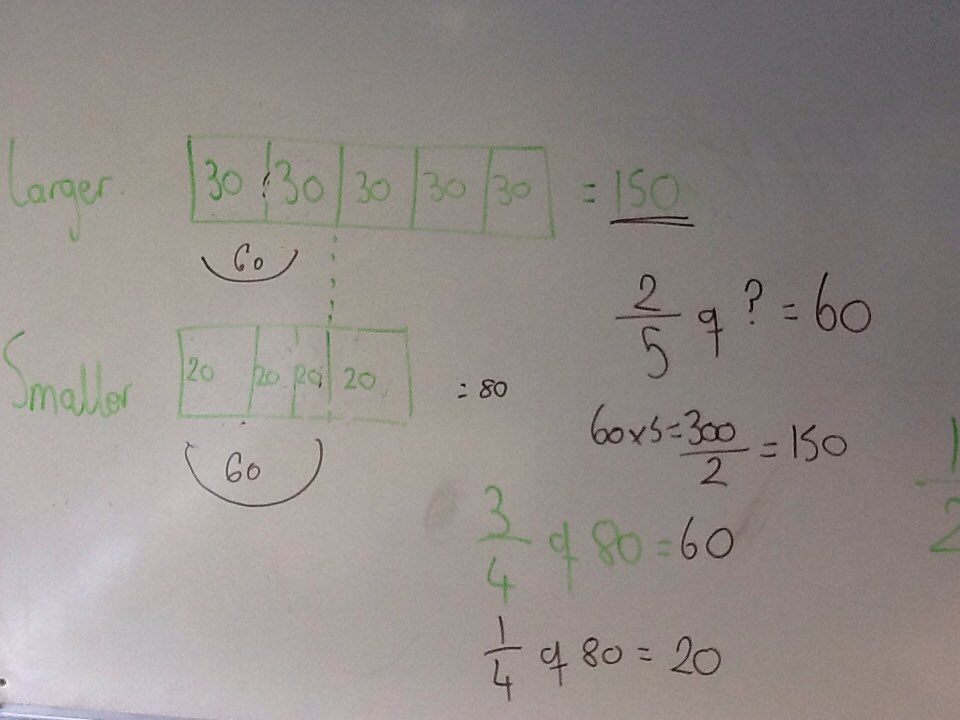 Larger. 30 30 30 30 30 = 150
60
2/5 of ? = 60
Smaller 20 20 20 20 = 80
60
60x5=300/2 = 150
3/4 of 80 = 60
1/4 of 80 = 20
1/2